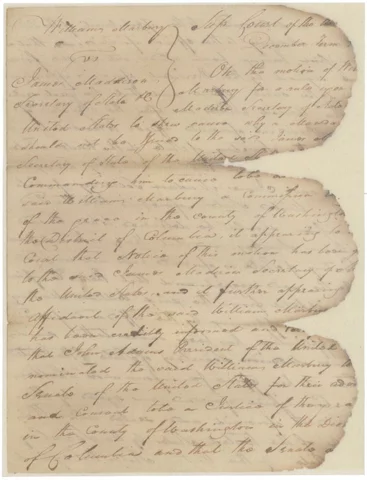 William Marbury Supr Court of the
vs December Term
James Maddison On the motion of
Secretary of State of Marbury for a rule upon
United States to shew cause why a Manda
should not be to the said James
Secretary of State of the United
Commanding him to cause to be
said William Marbury a Commission
of the peace in the county of Washington
the District of Columbia it appearing to
Court that Notice of this motion has been
to the said James Madison Secretary of
the United States, and it further appearing
affidavit of the said William Marbury
has been credibly informed and
that John Adams President of the United
nominated the said William Marbury to
Senate of the United States for their
and Consent to be a Justice of the
in the County of Washington in the Dist
of Columbia and that the Senate